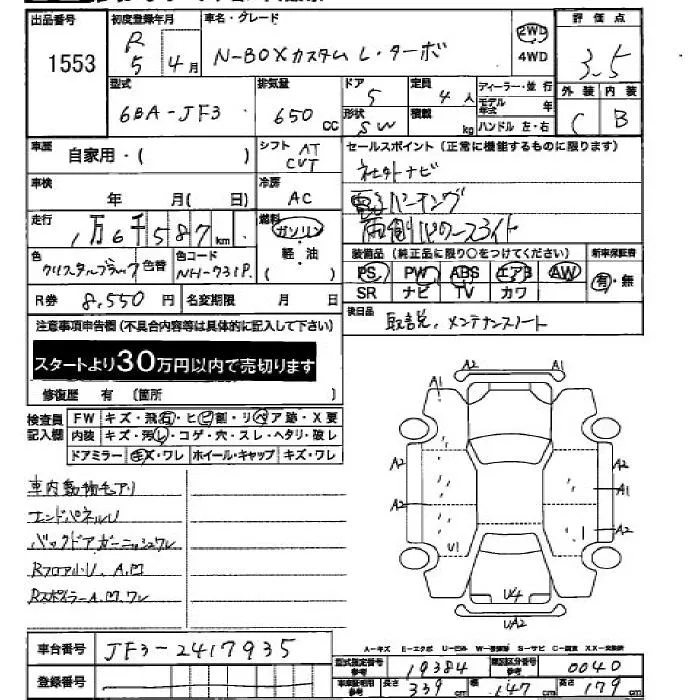 出品番号 初度登録年月 車名・グレード 2WD 4WD 評価点
1553 R5年4月 N-BOXカスタム L・ターボ 3.5
型式 排気量 ドア 定員 ディーラー・並行 外装 内装
6BA-JF3 650cc 5 4人 モデル年式 年 C B
形状 SW 積載 kg ハンドル 左・右
車歴 自家用・( ) シフト AT CVT セールスポイント(正常に機能するものに限ります)
車検 年 月( 日) 冷房 AC 社外ナビ
電子パーキング
走行 1万6千587km 燃料 ガソリン 軽・油 両側パワースライド
色 クリスタルブラック 色替 色コード NH-731P ( ) 装備品(純正品に限り○をつけてください) 新車保証書
PS PW ABS エアB AW 有・無
R券 8,550円 名変期限 月 日 SR ナビ TV カワ
注意事項申告欄(不具合内容等は具体的に記入して下さい) 後日品 取説、メンテナンスノート
スタートより30万円以内で売切ります
修復歴 有 (箇所 )
検査員記入欄 FW キズ・飛石・ヒビ割・リペア跡・X要
内装 キズ・汚レ・コゲ・穴・スレ・ヘタリ・破レ
ドアミラー キズ・ワレ ホイール・キャップ キズ・ワレ
車内動物毛アリ
エンドパネルU
バックドアガーニッシュワレ
RフロアU、A、凹
RスポイラーA、凹、ワレ
A2 A1
A1 A2
A2 A2
A1
A2 A2
U1 1
U4
UA2
A-キズ E-エクボ U-凹ミ W-補修跡 S-サビ C-腐食 XX-交換済
車台番号 JF3-2417935
登録番号
型式指定番号参考 19384 類別区分番号参考 0040
車庫証明用参考 長さ 339cm 幅 147cm 高さ 179cm